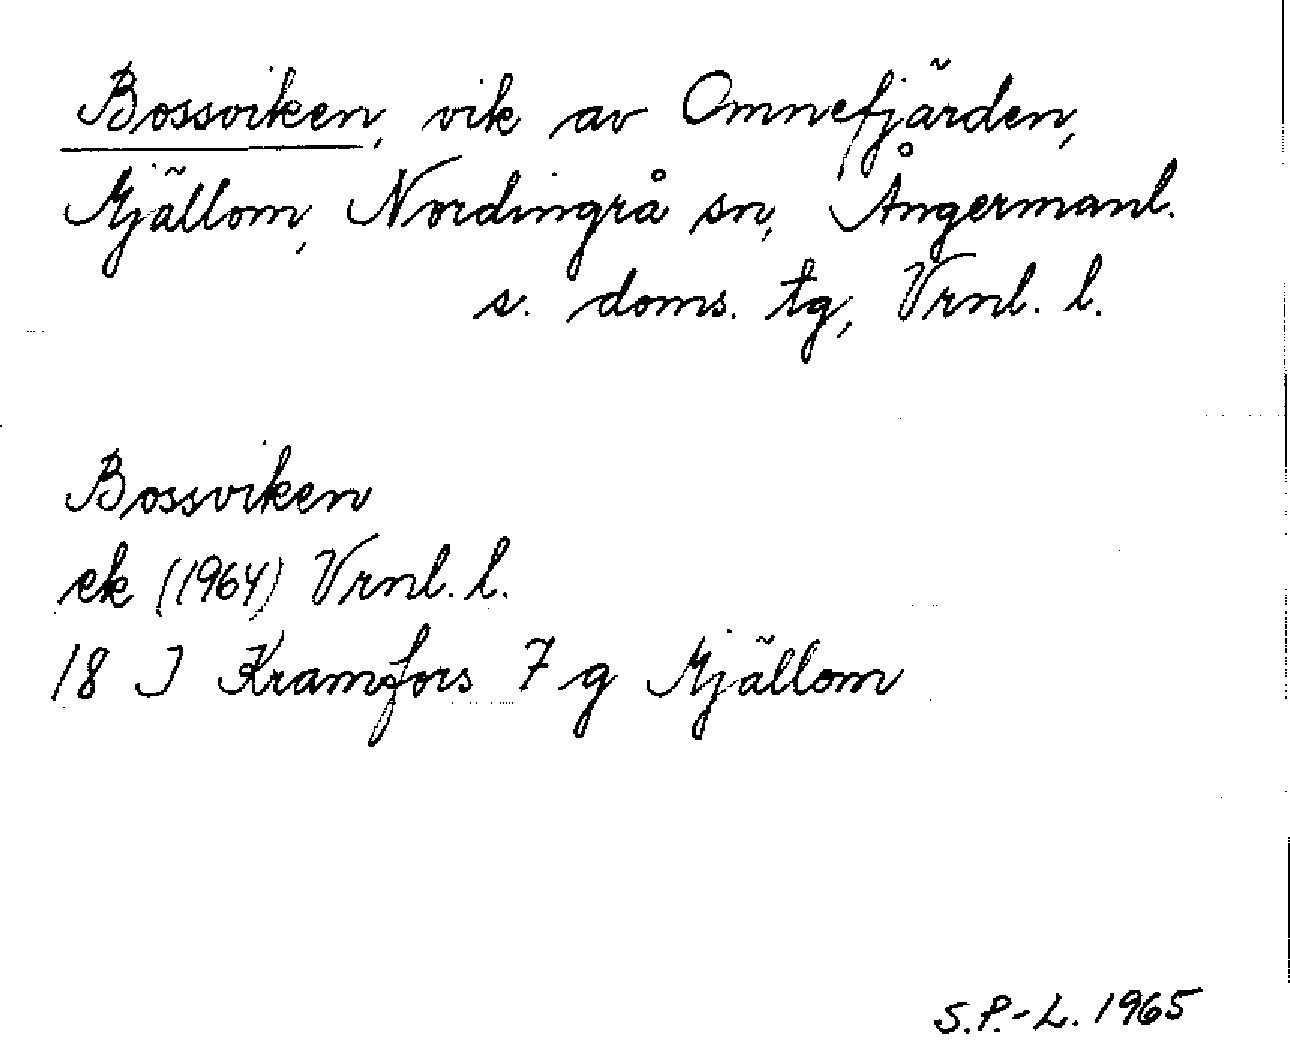 Bossviken, vik av Omnefjärden,
Mjällom, Nordingrå sn, Ångermanl.
s. doms. tg, Vrnl. l.
Bossviken
ek (1964) Vrnl. l.
18 I Kramfors 7 g Mjällom
S.P.-L. 1965